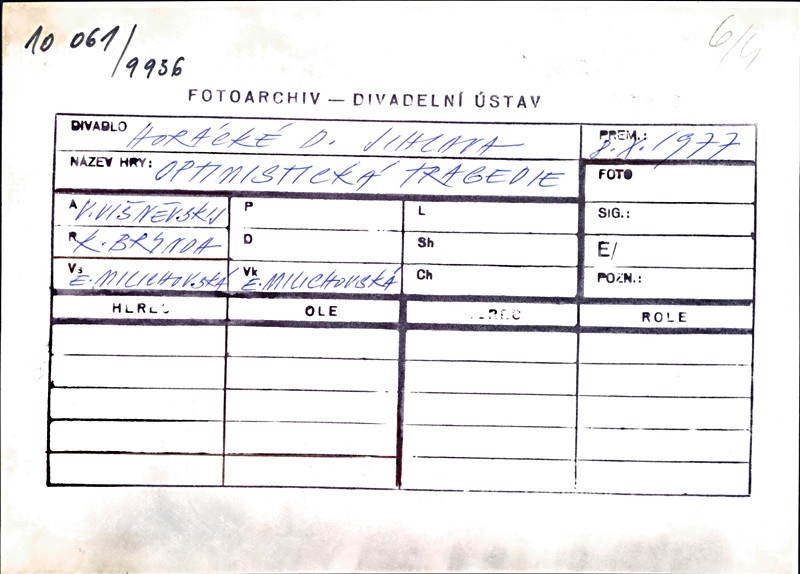 10 061/9936
6/4
FOTOARCHIV — DIVADELNÍ ÚSTAV
DIVADLO HORÁCKÉ D. JIHLAVA
PREM.: 8.X.1977
NÁZEV HRY: OPTIMISTICKÁ TRAGEDIE
FOTO
A V.VIŠNĚVSKIJ P L
SIG.:
R K. BRÝNDA D Sh
E/
Vs E.MILICHOVSKÁ Vk E.MILICHOVSKÁ Ch
POZN.:
HEREC OLE EREC ROLE